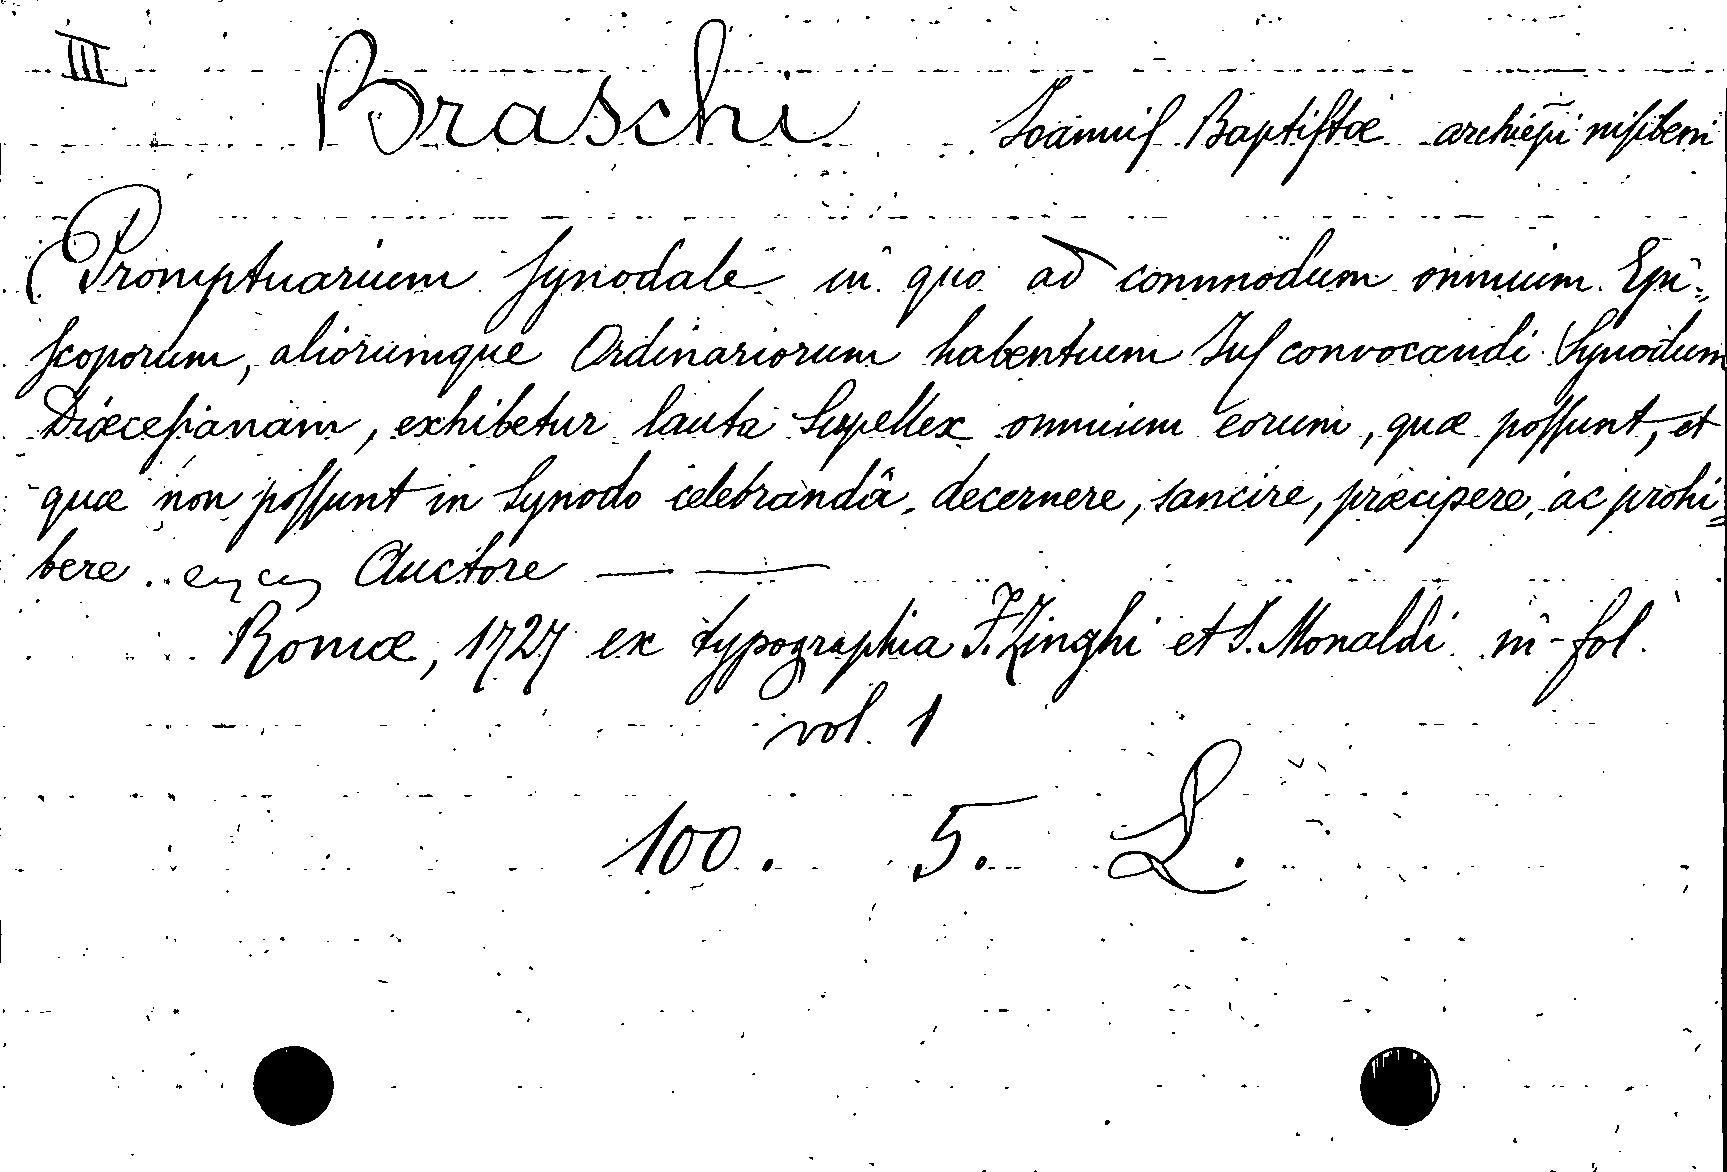 III Braschi Joannis Baptistæ archiepi nisibeni
Promptuarium synodale in quo ad commodum omnium Epi=
scoporum, aliorumque Ordinariorum habentium Jus convocandi Synodum
Diœcesanam, exhibetur lauta Supellex omnium eorum, quæ possunt, et
quæ non possunt in Synodo celebrandâ, decernere, sancire, præcipere, ac prohi=
bere .. Auctore — —
Romæ, 1727 ex typographia F. Zinghi et J. Monaldi in-fol.
vol. 1
100. 5. L.